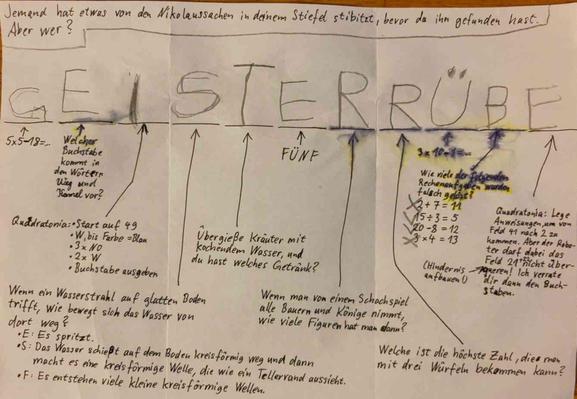 Jemand hat etwas von den Nikolaussachen in deinem Stiefel stibitzt, bevor du ihn gefunden hast.
Aber wer?
GEISTERRÜBE
5x5-18=...
Welcher
Buchstabe
kommt in
den Wörtern
Weg und
vor?
FÜNF
3 x 10 - 1 = ...
Wie viele der folgenden
Rechenaufgaben wurden
falsch gelöst?
2 + 7 = 11
15 ÷ 3 = 5
20 - 8 = 12
3 x 4 = 13
Quadratonia: • Start auf 49
• W, bis Farbe = Blau
• 3 x NO
• 2 x W
• Buchstabe ausgeben
Übergieße Kräuter mit
kochendem Wasser, und
du hast welches Getränk?
Quadratonia: Lege
Anweisungen, um vom
Feld 41 nach 2 zu
kommen. Aber der Robo-
ter darf dabei das
Feld 21 nicht über-
queren! Ich verrate
dir dann den Buch-
staben.
(Hindernis
aufbauen!)
Wenn ein Wasserstrahl auf glatten Boden
trifft, wie bewegt sich das Wasser von
dort weg?
• E: Es spritzt.
• S: Das Wasser schießt auf dem Boden kreisförmig weg und dann
macht es eine kreisförmige Welle, die wie ein Tellerrand aussieht.
• F: Es entstehen viele kleine kreisförmige Wellen.
Wenn man von einem Schachspiel
alle Bauern und Könige nimmt,
wie viele Figuren hat man dann?
Welche ist die höchste Zahl, die man
mit drei Würfeln bekommen kann?